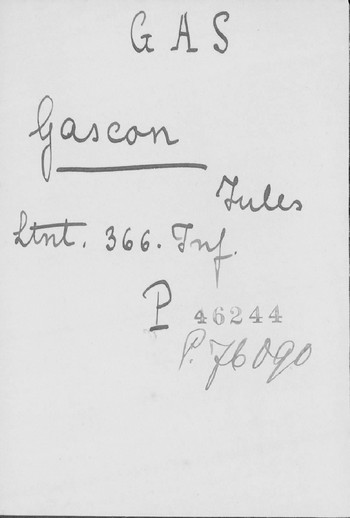 G A S
Gascon
Jules
Ltnt. 366. Inf.
P 46244
P. 76090